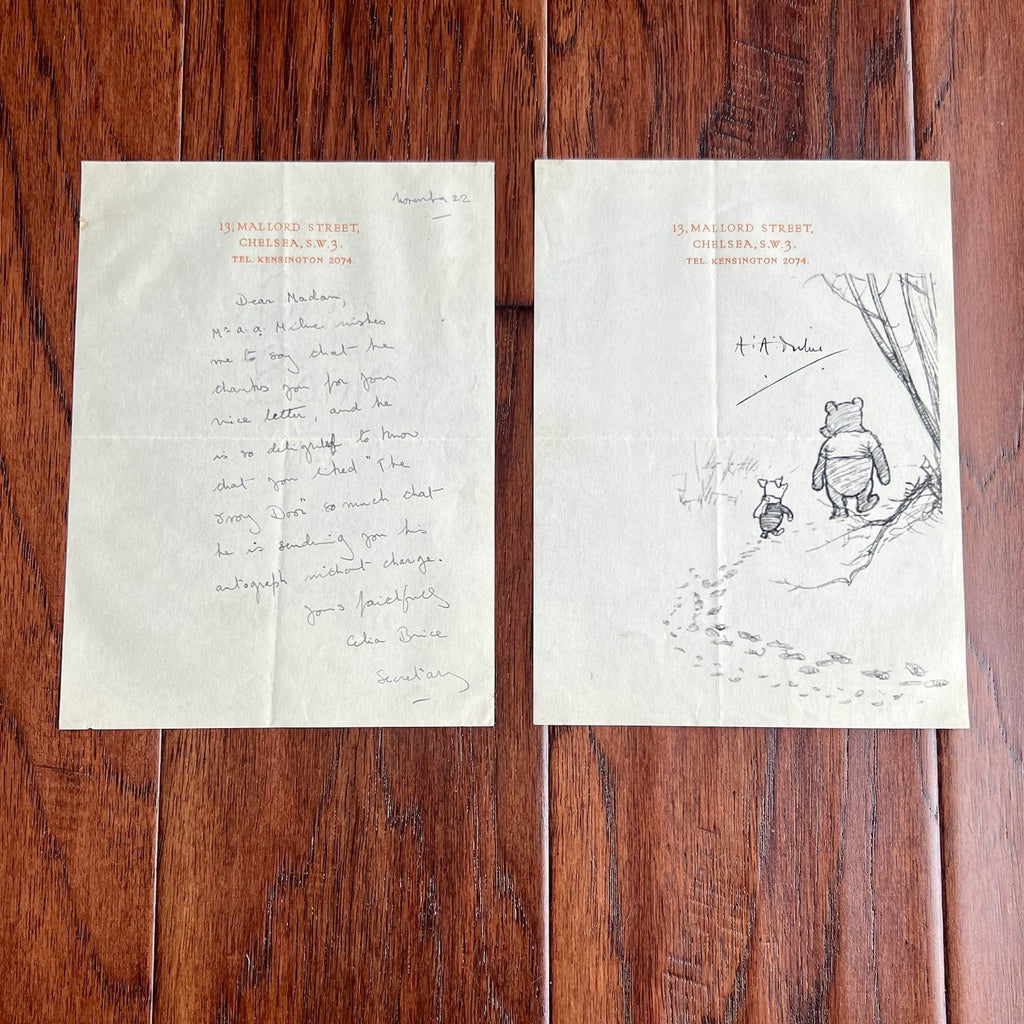 November 22
13, MALLORD STREET,
CHELSEA, S.W.3.
TEL. KENSINGTON 2074.
Dear Madam,
Mr A. A. Milne wishes
me to say that he
thanks you for your
nice letter, and he
is so delighted to know
that you liked "The
Ivory Door" so much that
he is sending you his
autograph without charge.
Yours faithfully
Celia Brice
Secretary
13, MALLORD STREET,
CHELSEA, S.W.3.
TEL. KENSINGTON 2074.
A. A. Milne